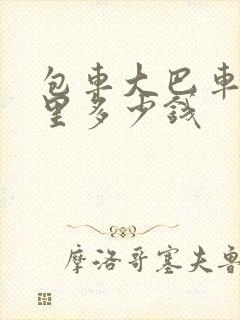 包車大巴車
里多少錢
摩洛哥塞夫魯